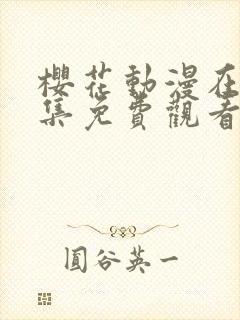 櫻花動漫在
集免費觀看
圓谷英一